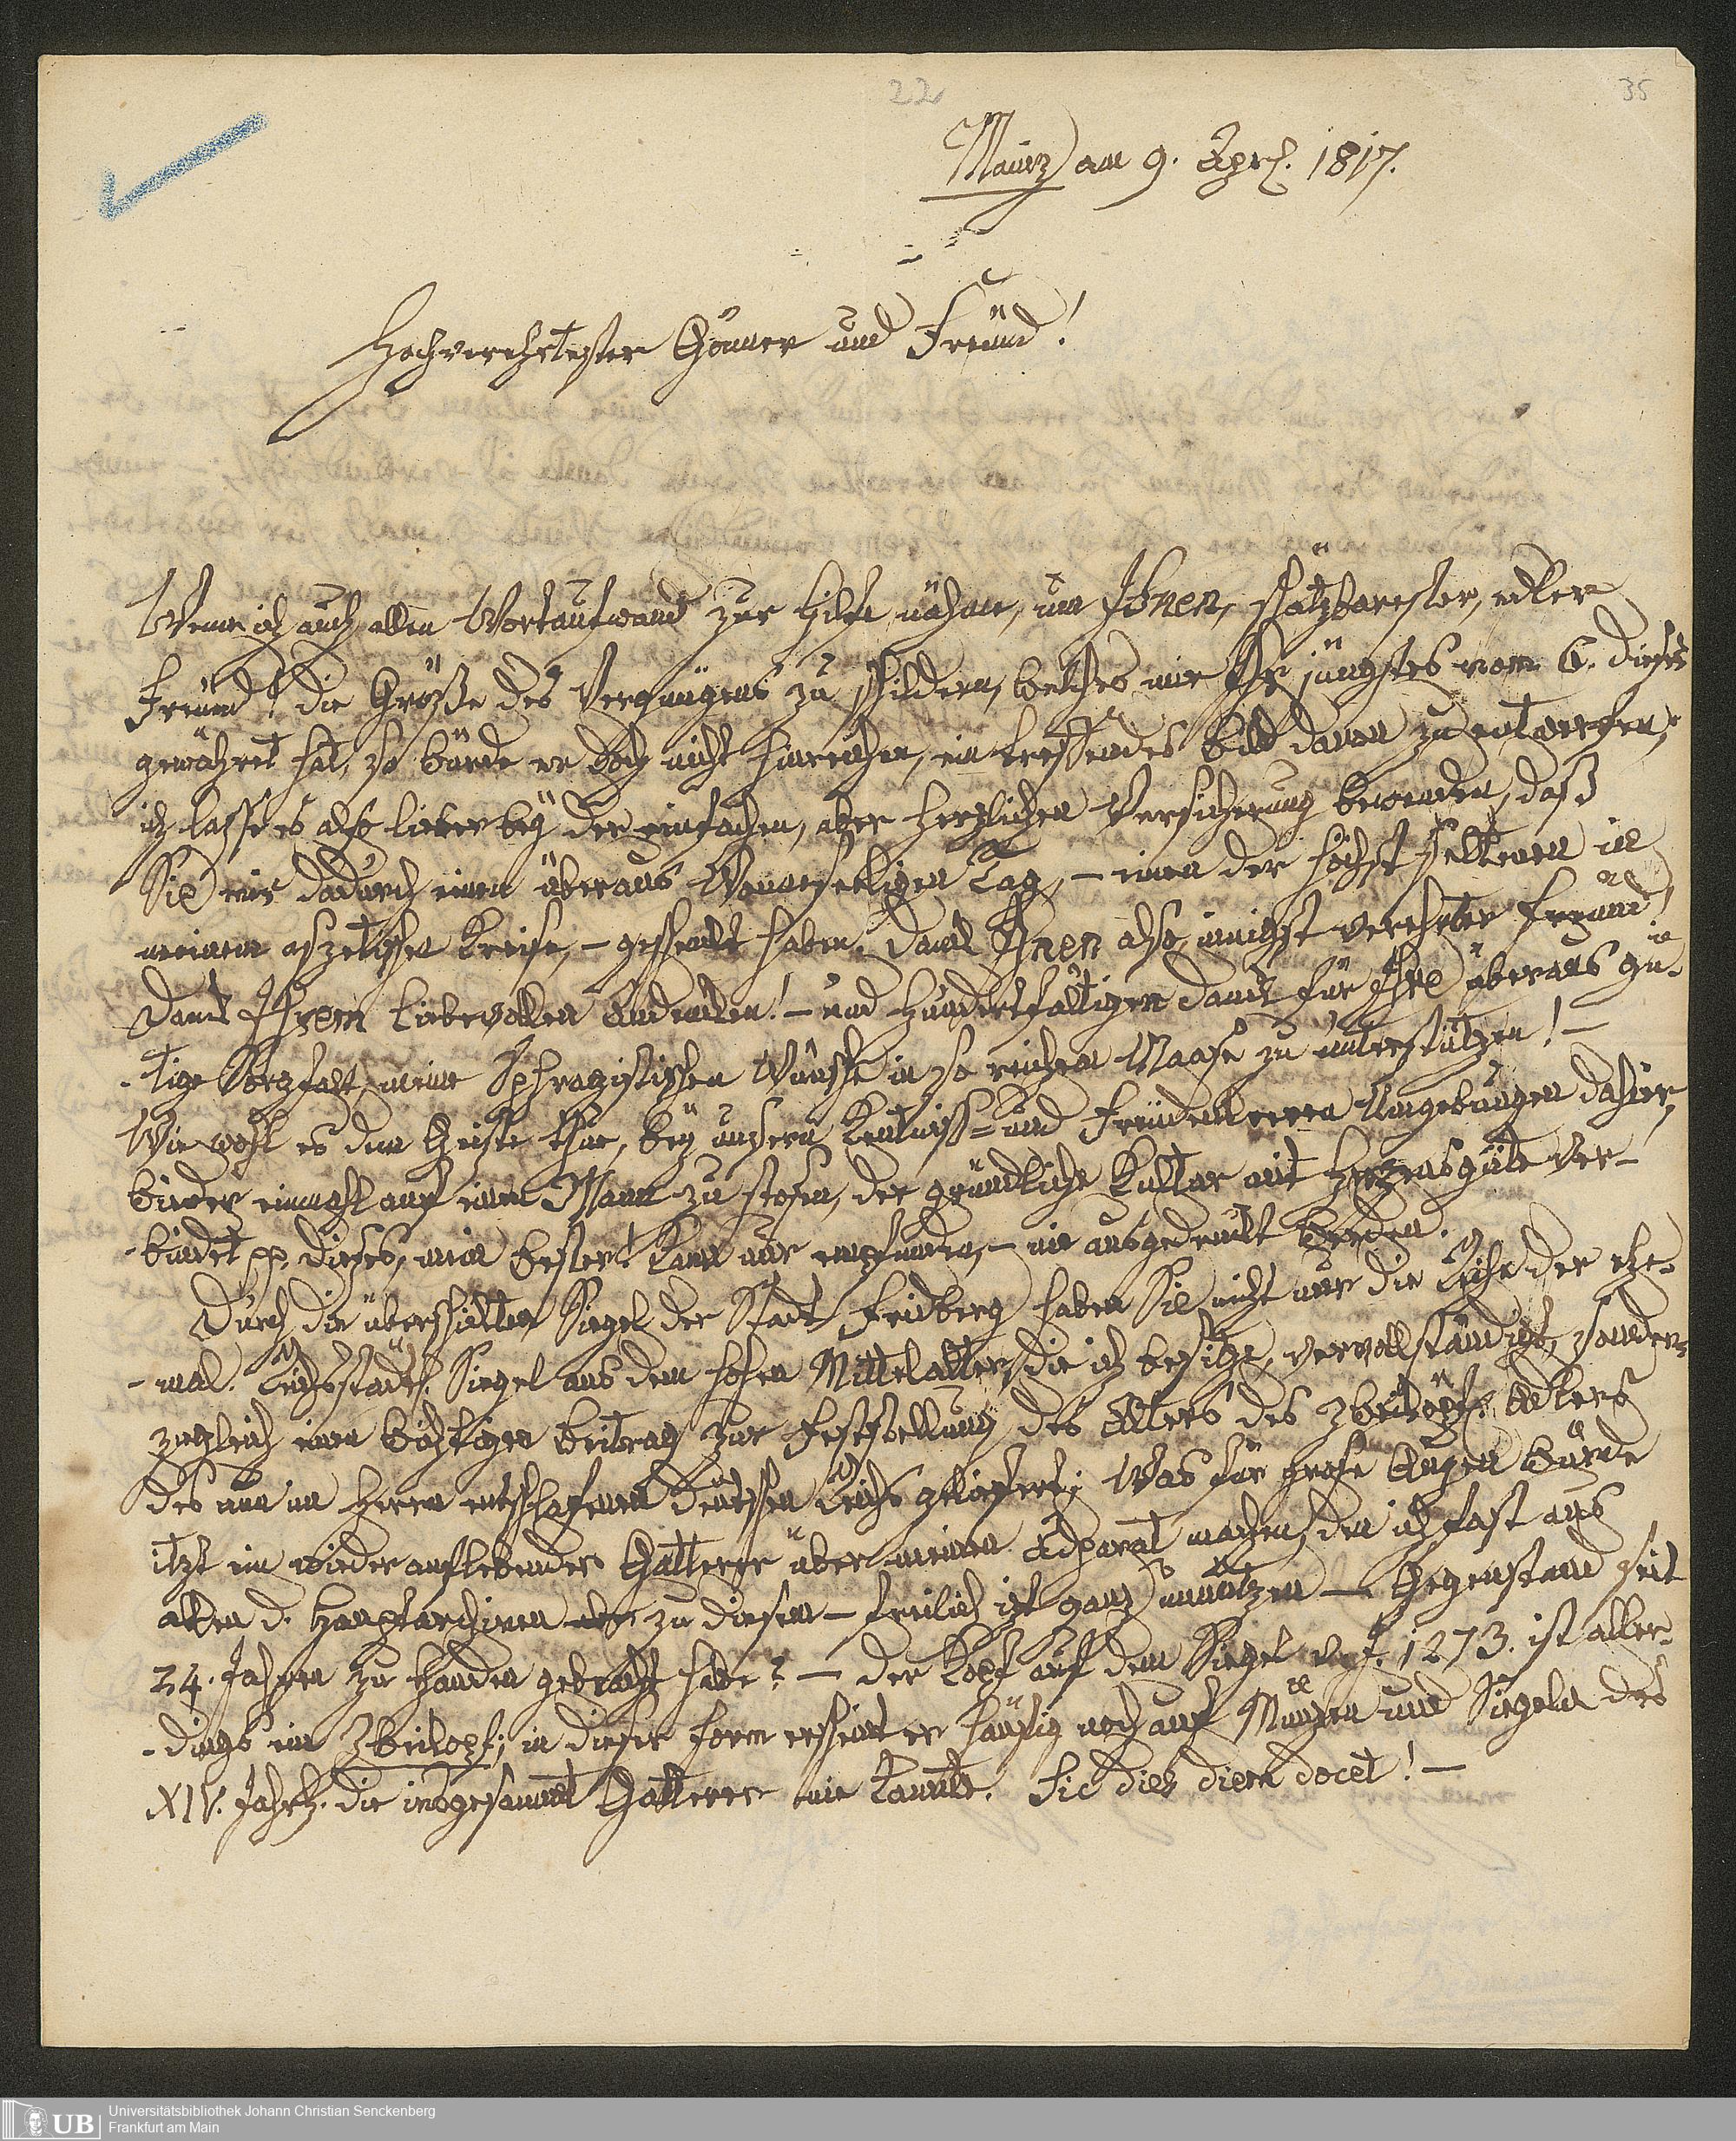 22
35
Mainz am 9. Apr. 1817.
Hochverehrtester Gönner und Freund!
Wenn ich auch allen Wortaufwand zur Hilfe nähme, um Ihnen, schätzbarester, edler
Freund! die Größe des Vergnügens zu schildern, welches mir Ihr jüngstes vom 6. dieses
gewähret hat, so würde er doch nicht hinreichen, ein treffendes Bild davon zu entwerfen;
ich lasse es also lieber bey der einfachen, aber herzlichen Versicherung bewenden, daß
Sie mir dadurch einen überaus Wonneseligen Tag, – einen der höchst seltenen in
meinem aszetischen Kreise, – geschenkt haben. Dank Ihnen also, innigst verehrter Freund!
Dank Ihrem liebevollen Andenken! – und hundertfältigen Dank für Ihre überaus gü-
-tige Sorgfalt, meine Sphragistischen Wünsche in so reichem Maase zu unterstützen! –
Wie wohl es dem Geiste thue, bey unsern Kentniß- und Freudenleeren Umgebungen dahier,
wieder einmahl auf einen Mann zu stosen, der gründliche Kultur mit Herzensgüte ver-
-bindet pp. dieses, mein Bester! kann nur empfunden, – nie ausgedrückt werden.
Durch die überschickten Siegel der Stadt Fridberg haben Sie nicht nur die Reihe der ehe-
-mal. Reichsstädt. Siegel aus dem hohen Mittelalter, die ich besitze, vervollständigt, sondern
zugleich einen wichtigen Beitrag zur Festsellung des Alters des Zweiköpf. Adlers
des nun im Herrn entschlafenen deutschen Reichs geliefert; Was für grose Augen würde
itzt ein wieder auflebender Gatterer über meinen Adparat machen, den ich fast aus
allen d. Hauptarchiven zu diesem – freilich itzt ganz unnützen – Gegenstand seit
24. Jahren zu Handen gebracht habe? – der Kopf auf dem Siegel v. J. 1273. ist aller-
-dings ein Zweikopf; in dieser Form erscheint er häufig noch auf Münzen und Siegeln des
XIV. Jahrh. die insgesammt Gatterer nie kannte. Sic dies diem docet! –
UB
Universitätsbibliothek Johann Christian Senckenberg
Frankfurt am Main